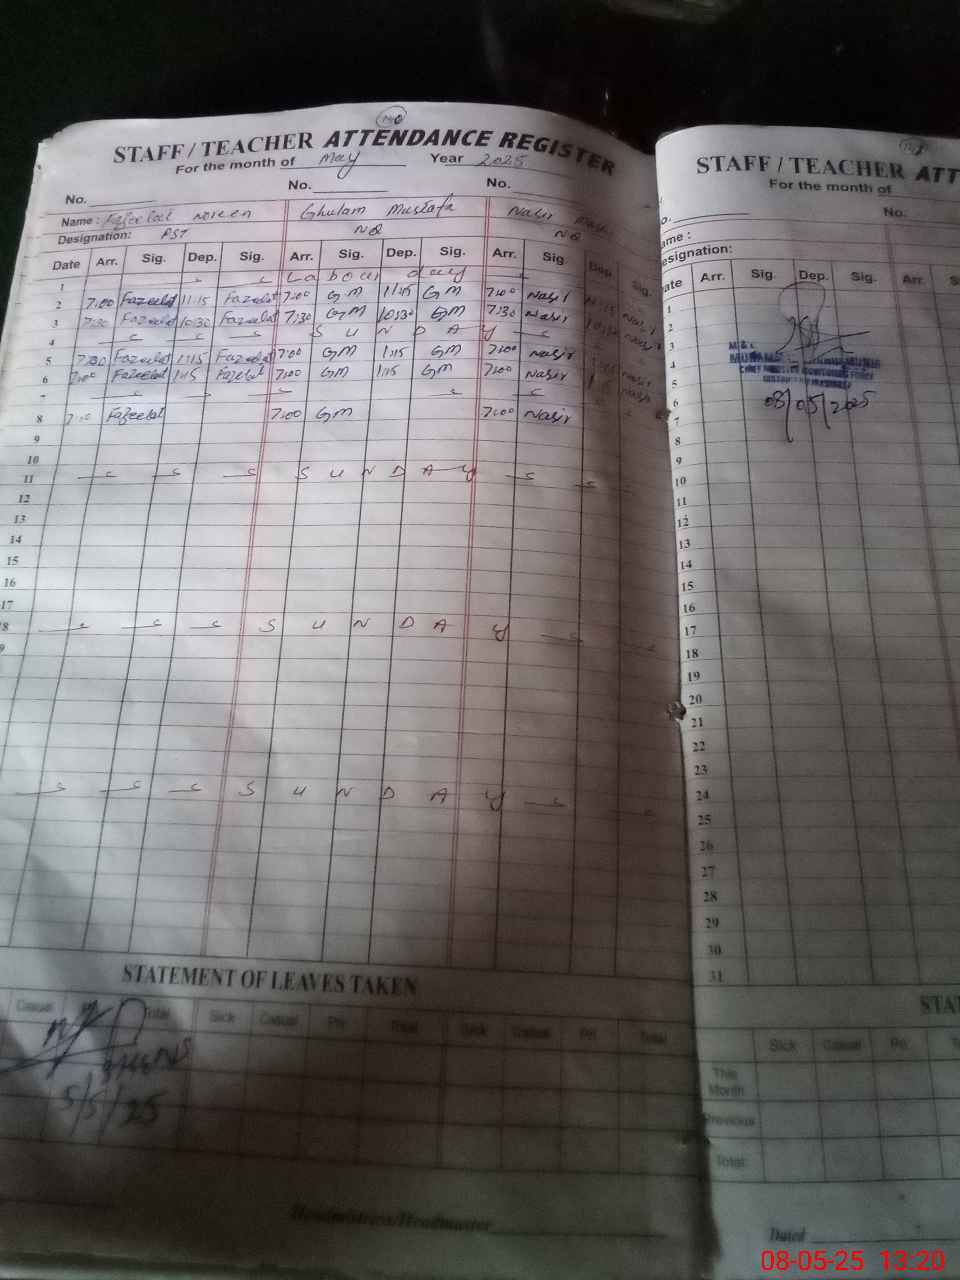 140
STAFF / TEACHER ATTENDANCE REGISTER
For the month of May Year 2025
No. No. No.
Name: Fazeelat noreen Ghulam Mustafa Nasir
Designation: PST NQ NQ
Date Arr. Sig. Dep. Sig. Arr. Sig. Dep. Sig. Arr. Sig Dep. Sig.
1 Labour day
2 7:00 Fazeelat 11:15 Fazeelat 7:00 GM 11:15 GM 7:00 Nasir 11:15 Nasir
3 7:30 Fazeelat 10:30 Fazeelat 7:30 GM 10:30 GM 7:30 Nasir 10:30 Nasir
4 SUNDAY
5 7:00 Fazeelat 1:15 Fazeelat 7:00 GM 1:15 GM 7:00 Nasir Nasir
6 7:00 Fazeelat 1:15 Fazeelat 7:00 GM 1:15 GM 7:00 Nasir Nasir
7
8 7:00 Fazeelat 7:00 GM 7:00 Nasir
9
10
11 SUNDAY
12
13
14
15
16
17
18 SUNDAY
9
SUNDAY
STATEMENT OF LEAVES TAKEN
Casual Total Sick Casual Pri. Total Sick Casual Pri. Total
5/5/25
Headmistress/Headmaster
STAFF / TEACHER ATT
For the month of
No. No.
ame :
esignation:
ate Arr. Sig. Dep. Sig. Arr. S
1
2
3
4
5
6
7
8
9
10
11
12
13
14
15
16
17
18
19
20
21
22
23
24
25
26
27
28
29
30
31
08/05/2025
STA
Sick Casual Pri. T
This Month
Previous
Total:
Dated
08-05-25 13:20